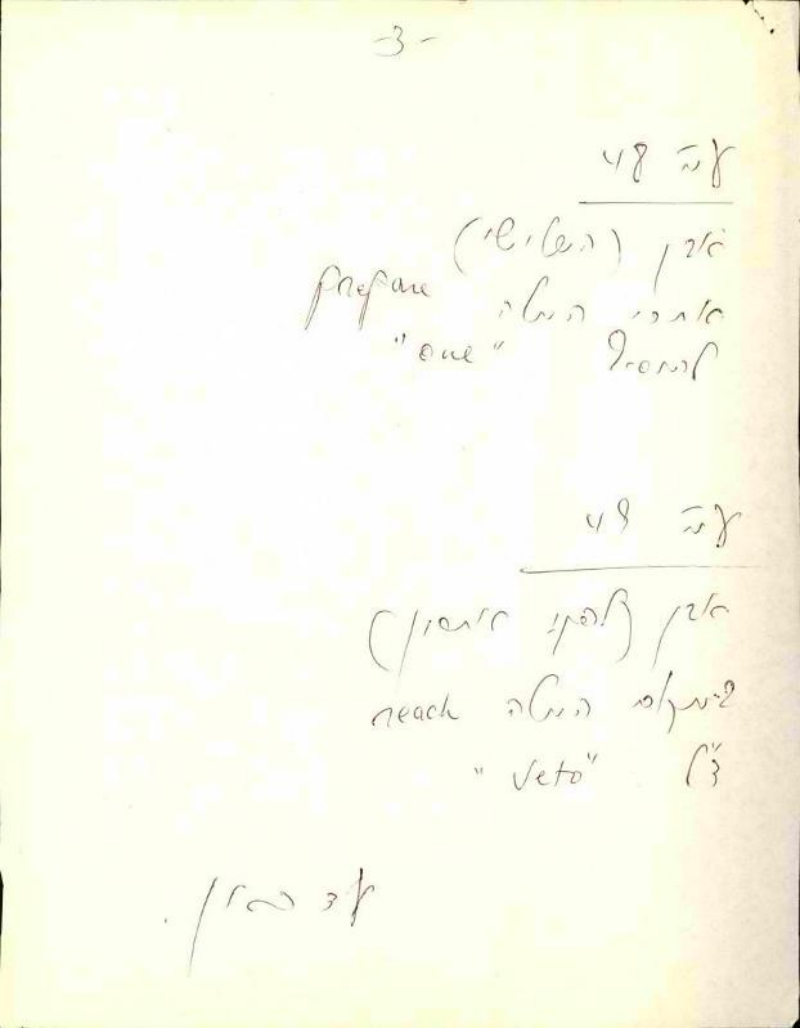 -3-
עמ' 48
אבן (השלישי)
אחרי המלה prepare
להוסיף "one"
עמ' 49
אבן (הלפני אחרון)
במקום המלה reach
צ"ל "veto"
עד כאן.